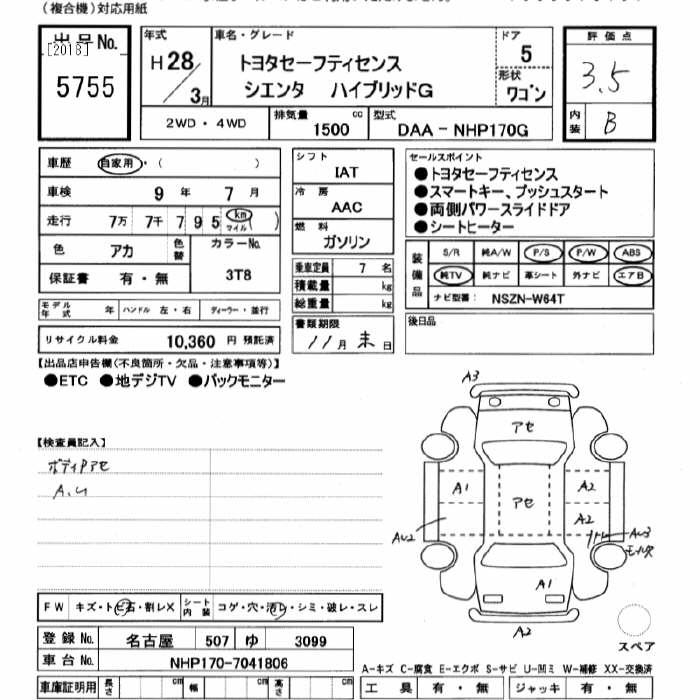 (複合機)対応用紙
出品 No.
[2018]
5755
年式
H28/3月
車名・グレード
トヨタセーフティセンス
シエンタ ハイブリッドG
ドア
5
形状
ワゴン
評価点
3.5
内装
B
2WD・4WD
排気量
1500 cc
型式
DAA-NHP170G
車歴 自家用・( )
車検 9 年 7 月
走行 7万 7千 7 9 5 km マイル ( )
色 アカ 色替 カラーNo.
保証書 有・無 3T8
モデル年式 年 ハンドル 左・右 ディーラー・並行
リサイクル料金 10,360 円 預託済
シフト
IAT
冷房
AAC
燃料
ガソリン
乗車定員 7 名
積載量 kg
総重量 kg
書類期限
11月 末日
セールスポイント
●トヨタセーフティセンス
●スマートキー、プッシュスタート
●両側パワースライドドア
●シートヒーター
装備品
S/R 純A/W P/S P/W ABS
純TV 純ナビ 革シート 外ナビ エアB
ナビ型番: NSZN-W64T
後日品
【出品店申告欄(不良箇所・欠品・注意事項等)】
●ETC ●地デジTV ●バックモニター
【検査員記入】
ボディPアセ
A.U
A3
アセ
A1
アセ
A2
A2
AU2
AU3
A1
A2
スペア
FW キズ・トビ石・割レX シート内装 コゲ・穴・汚レ・シミ・破レ・スレ
登録 No. 名古屋 507 ゆ 3099
車台 No. NHP170-7041806
A-キズ C-腐食 E-エクボ S-サビ U-凹ミ W-補修 XX-交換済
車庫証明用 長さ cm 幅 cm 高さ cm
工具 有・無 ジャッキ 有・無